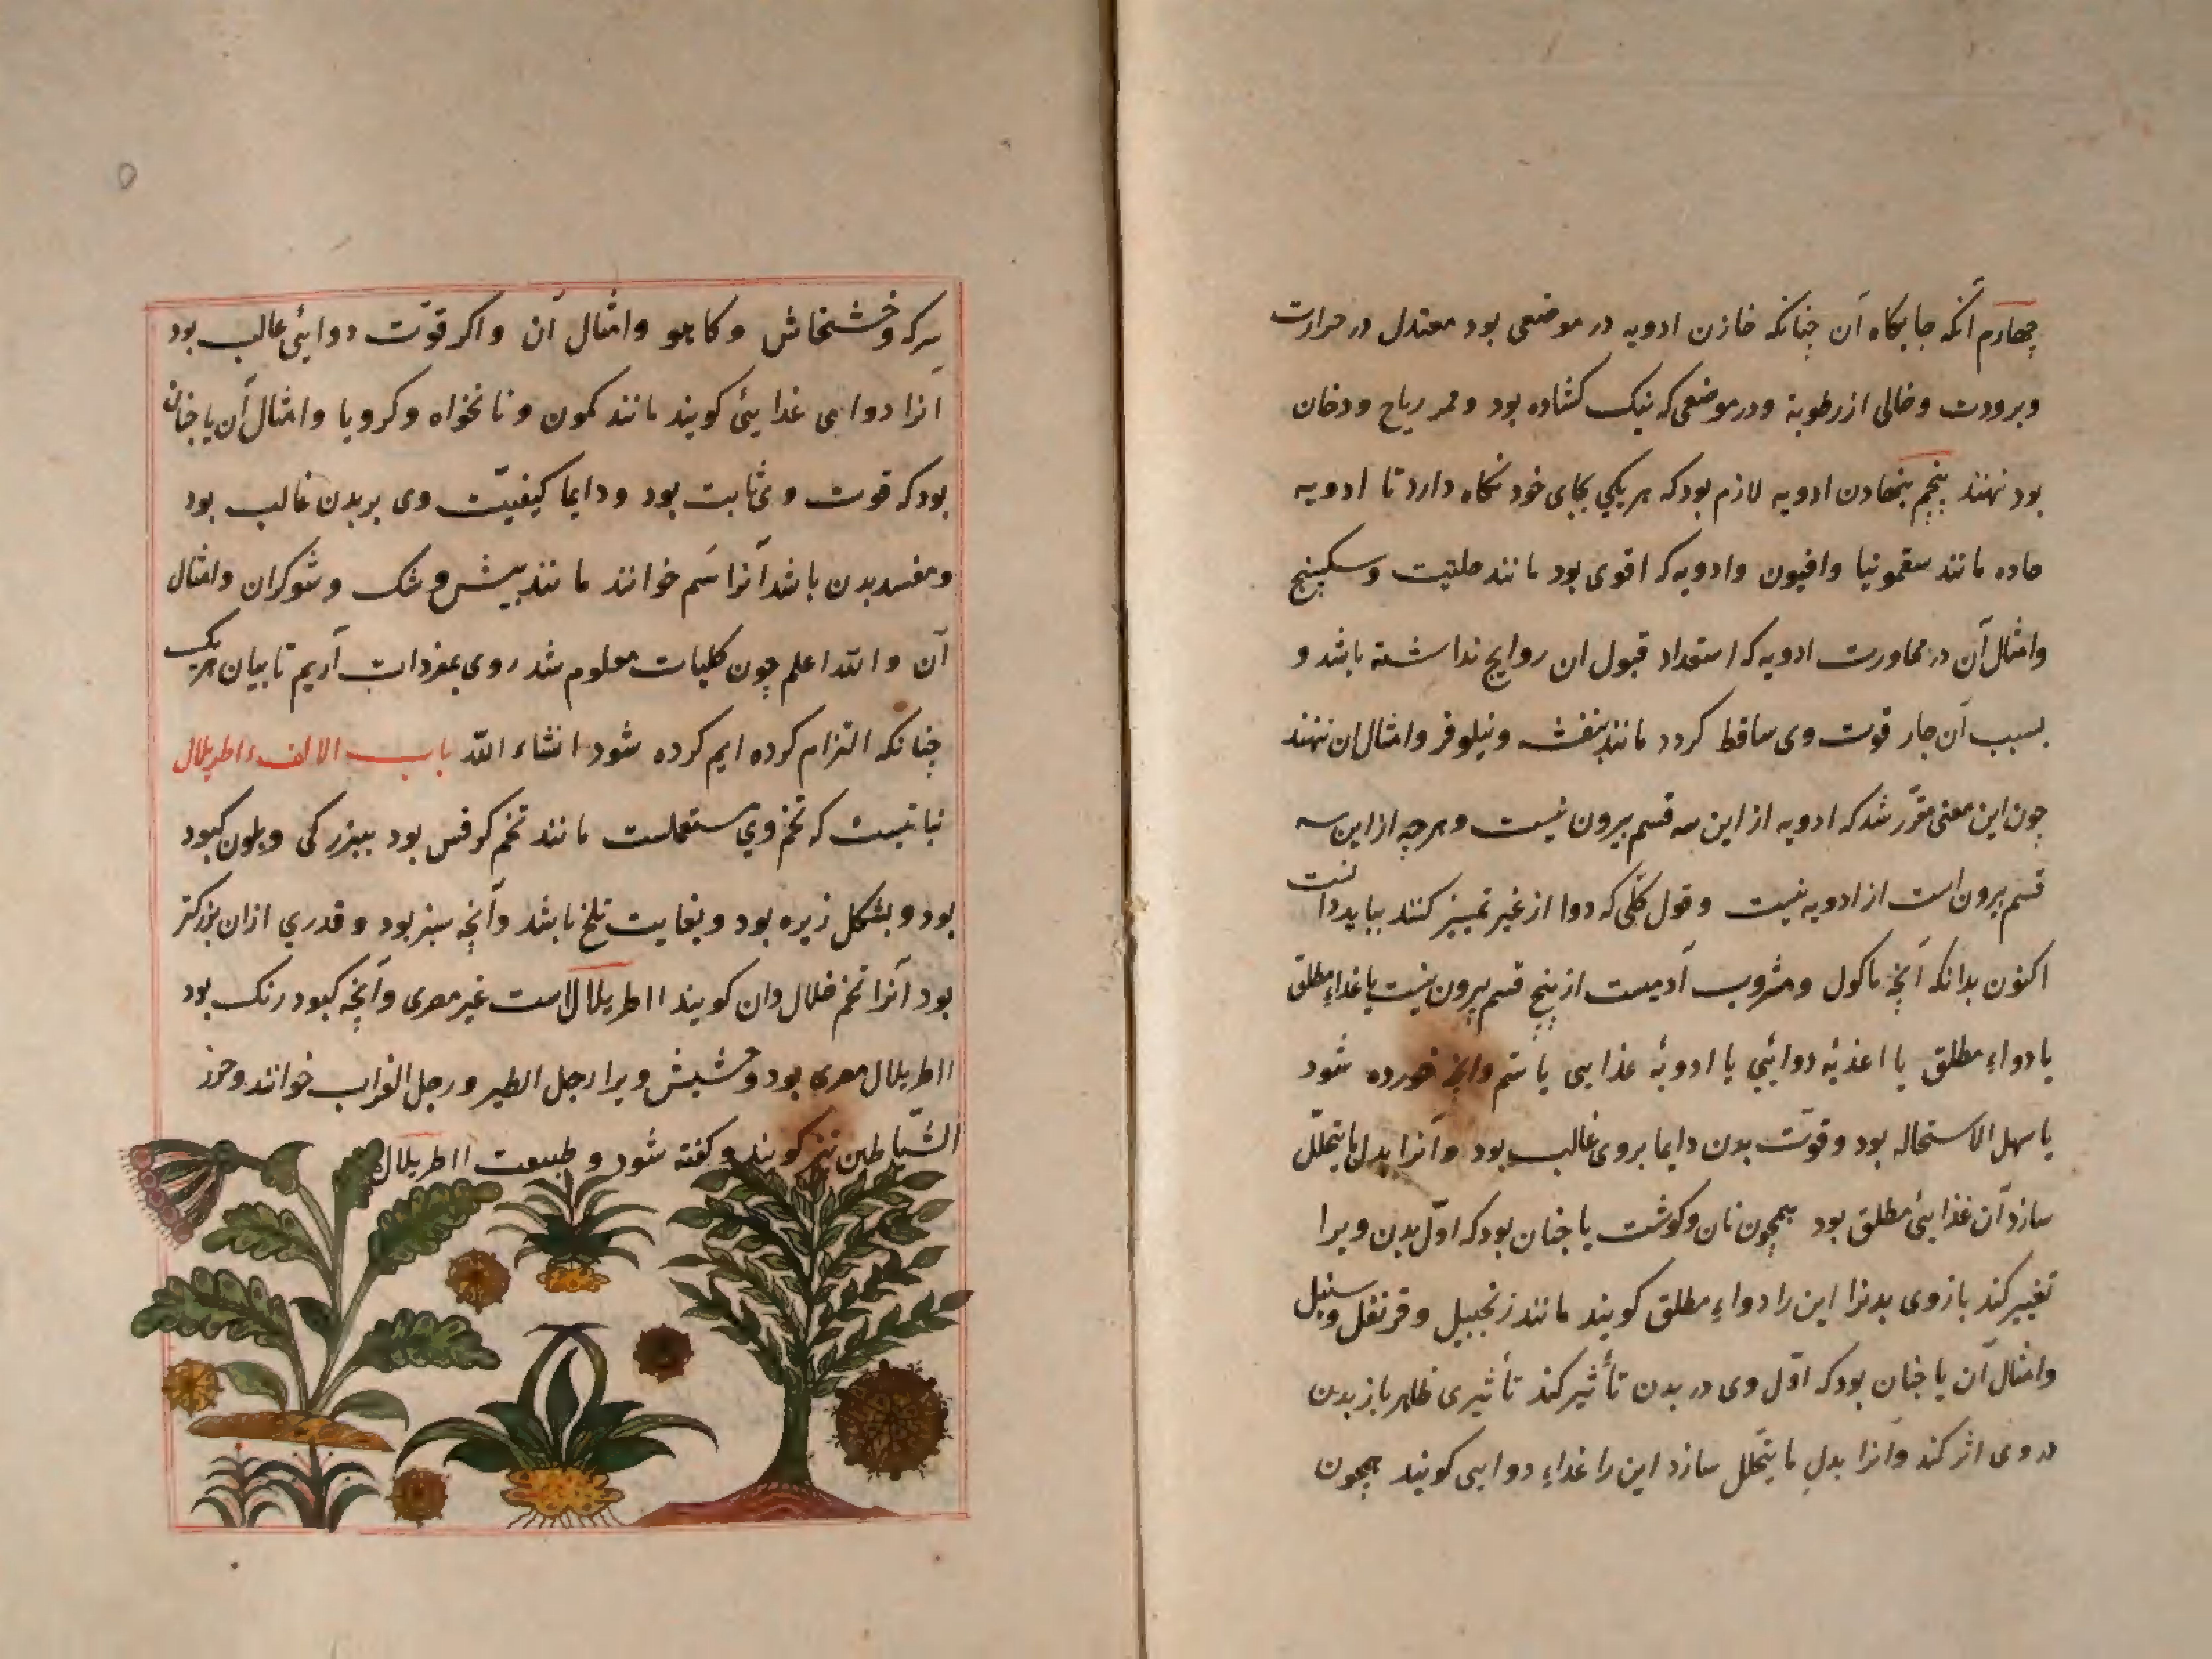 چهارم آنکه جایکاه آن چنانکه خازن ادویه در موضعی بود معتدل در حرارت
وبرودت وخالی ازرطوبة ودرموضعی که نیک کشاده بود وممر ریاح ودخان
بود ننهند پنجم بنهادن ادویه لازم بود که هریکی بجای خود نکاه دارد تا ادویه
حاده مانند سقمونیا وافیون وادویه که اقوی بود مانند حلتیت وسکبینج
وامثال آن در مجاورت ادویه که استعداد قبول ان روایح نداشته باشد و
بسبب آن حار قوت وی ساقط کردد مانند بنفشه ونیلوفر وامثال ان ننهند
چون این معنی مقرّر شد که ادویه از این سه قسم بیرون نیست وهرچه از این سه
قسم بیرون است از ادویه نیست وقول کلّی که دوا از غیر تمییز کنند بباید دانست
اکنون بدانکه آنچه ماکول ومشروب آدمیست از پنج قسم بیرون نیست یا غداءِ مطلق
یا دواءِ مطلق یا اغذیهٔ دوائیی یا ادویهٔ غذایی یا سّم وانچه خورده شود
یا سهل الاستحاله بود وقوّت بدن دایما بروی غالب بود وآنرا بدل ما یتحلّل
سازد آن غذایئی مطلق بود همچون نان وکوشت یا چنان بود که اوّل بدن ویرا
تغییر کند بازوی بدنرا این را دواءِ مطلق کویند مانند زنجبیل وقرنفل وسنبل
وامثال آن یا چنان بود که اوّل وی در بدن تأثیر کند تأثیری ظاهر باز بدن
در وی اثر کند وآنرا بدلِ ما یتحلّل سازد این را غداءِ دوایی کویند همچون
سرکه وخشخاش وکاهو وامثال آن واکر قوّت دوایئی غالب بود
آنرا دوایی غدایئی کویند مانند کمون ونانخواه وکرویا وامثال آن یا چنان
بود که قوت وی ثابت بود ودایما کیفیّت وی بر بدن غالب بود
ومفسد بدن باشد آنرا سَم خوانند مانند بیش وشک وشوکران وامثال
آن والله اعلم چون کلیات معلوم شد روی بمفردات آریم تا بیان هریک
چنانکه التزام کرده ایم کرده شود انشاء الله باب الالف ااطریلال
نباتیست که تخم وي مستعملست مانند تخم کرفس بود ببزرکی وبلون کبود
بود وبشکل زیره بود وبغایت تلخ باشد وآنچه سبز بود وقدري ازان بزرکتر
بود آنرا تخم خلال دان کویند ااطریلالاست غیر مصری وآنچه کبود رنک بود
ااطریلال مصری بود وحشیش ویرا رجل الطیر ورجل الغراب خوانند وحزز
الشّیاطین نیز کویند وکفته شود وطبیعت ااطریلال